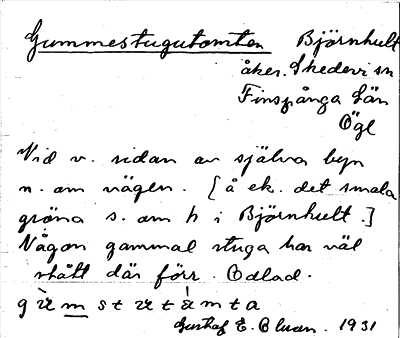 Gummestugutomten Björnhult
åker. Skedevi sn
Finspånga län
Ögl
Vid v. sidan av själva byn
n. om vägen. [å ek. det smala
gröna s. om h i Björnhult.]
Någon gammal stuga har väl
stått där förr. Odlad.
gùmstutàmta
Gustaf E. Olsson. 1931